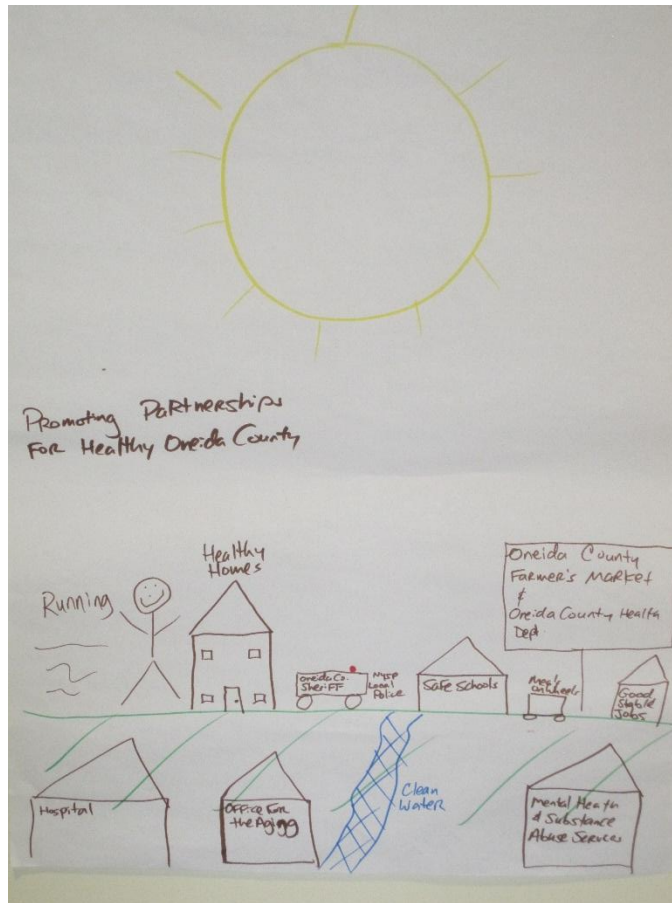 Promoting Partnerships
For Healthy Oneida County
Healthy
Homes
Running
Oneida Co.
Sheriff
NYSP
Local
Police
Safe Schools
Meals
on wheels
Oneida County
Farmer's Market
&
Oneida County Health
Dept.
Good
Stable
Jobs
Hospital
Office For
the Aging
Clean
Water
Mental Health
& Substance
Abuse Services